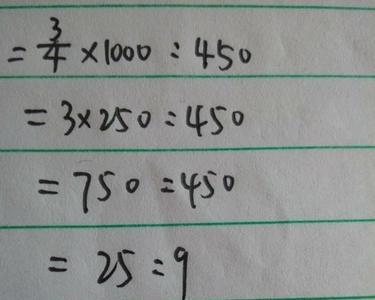 = 3/4 × 1000 : 450
= 3×250 : 450
= 750 : 450
= 25 : 9